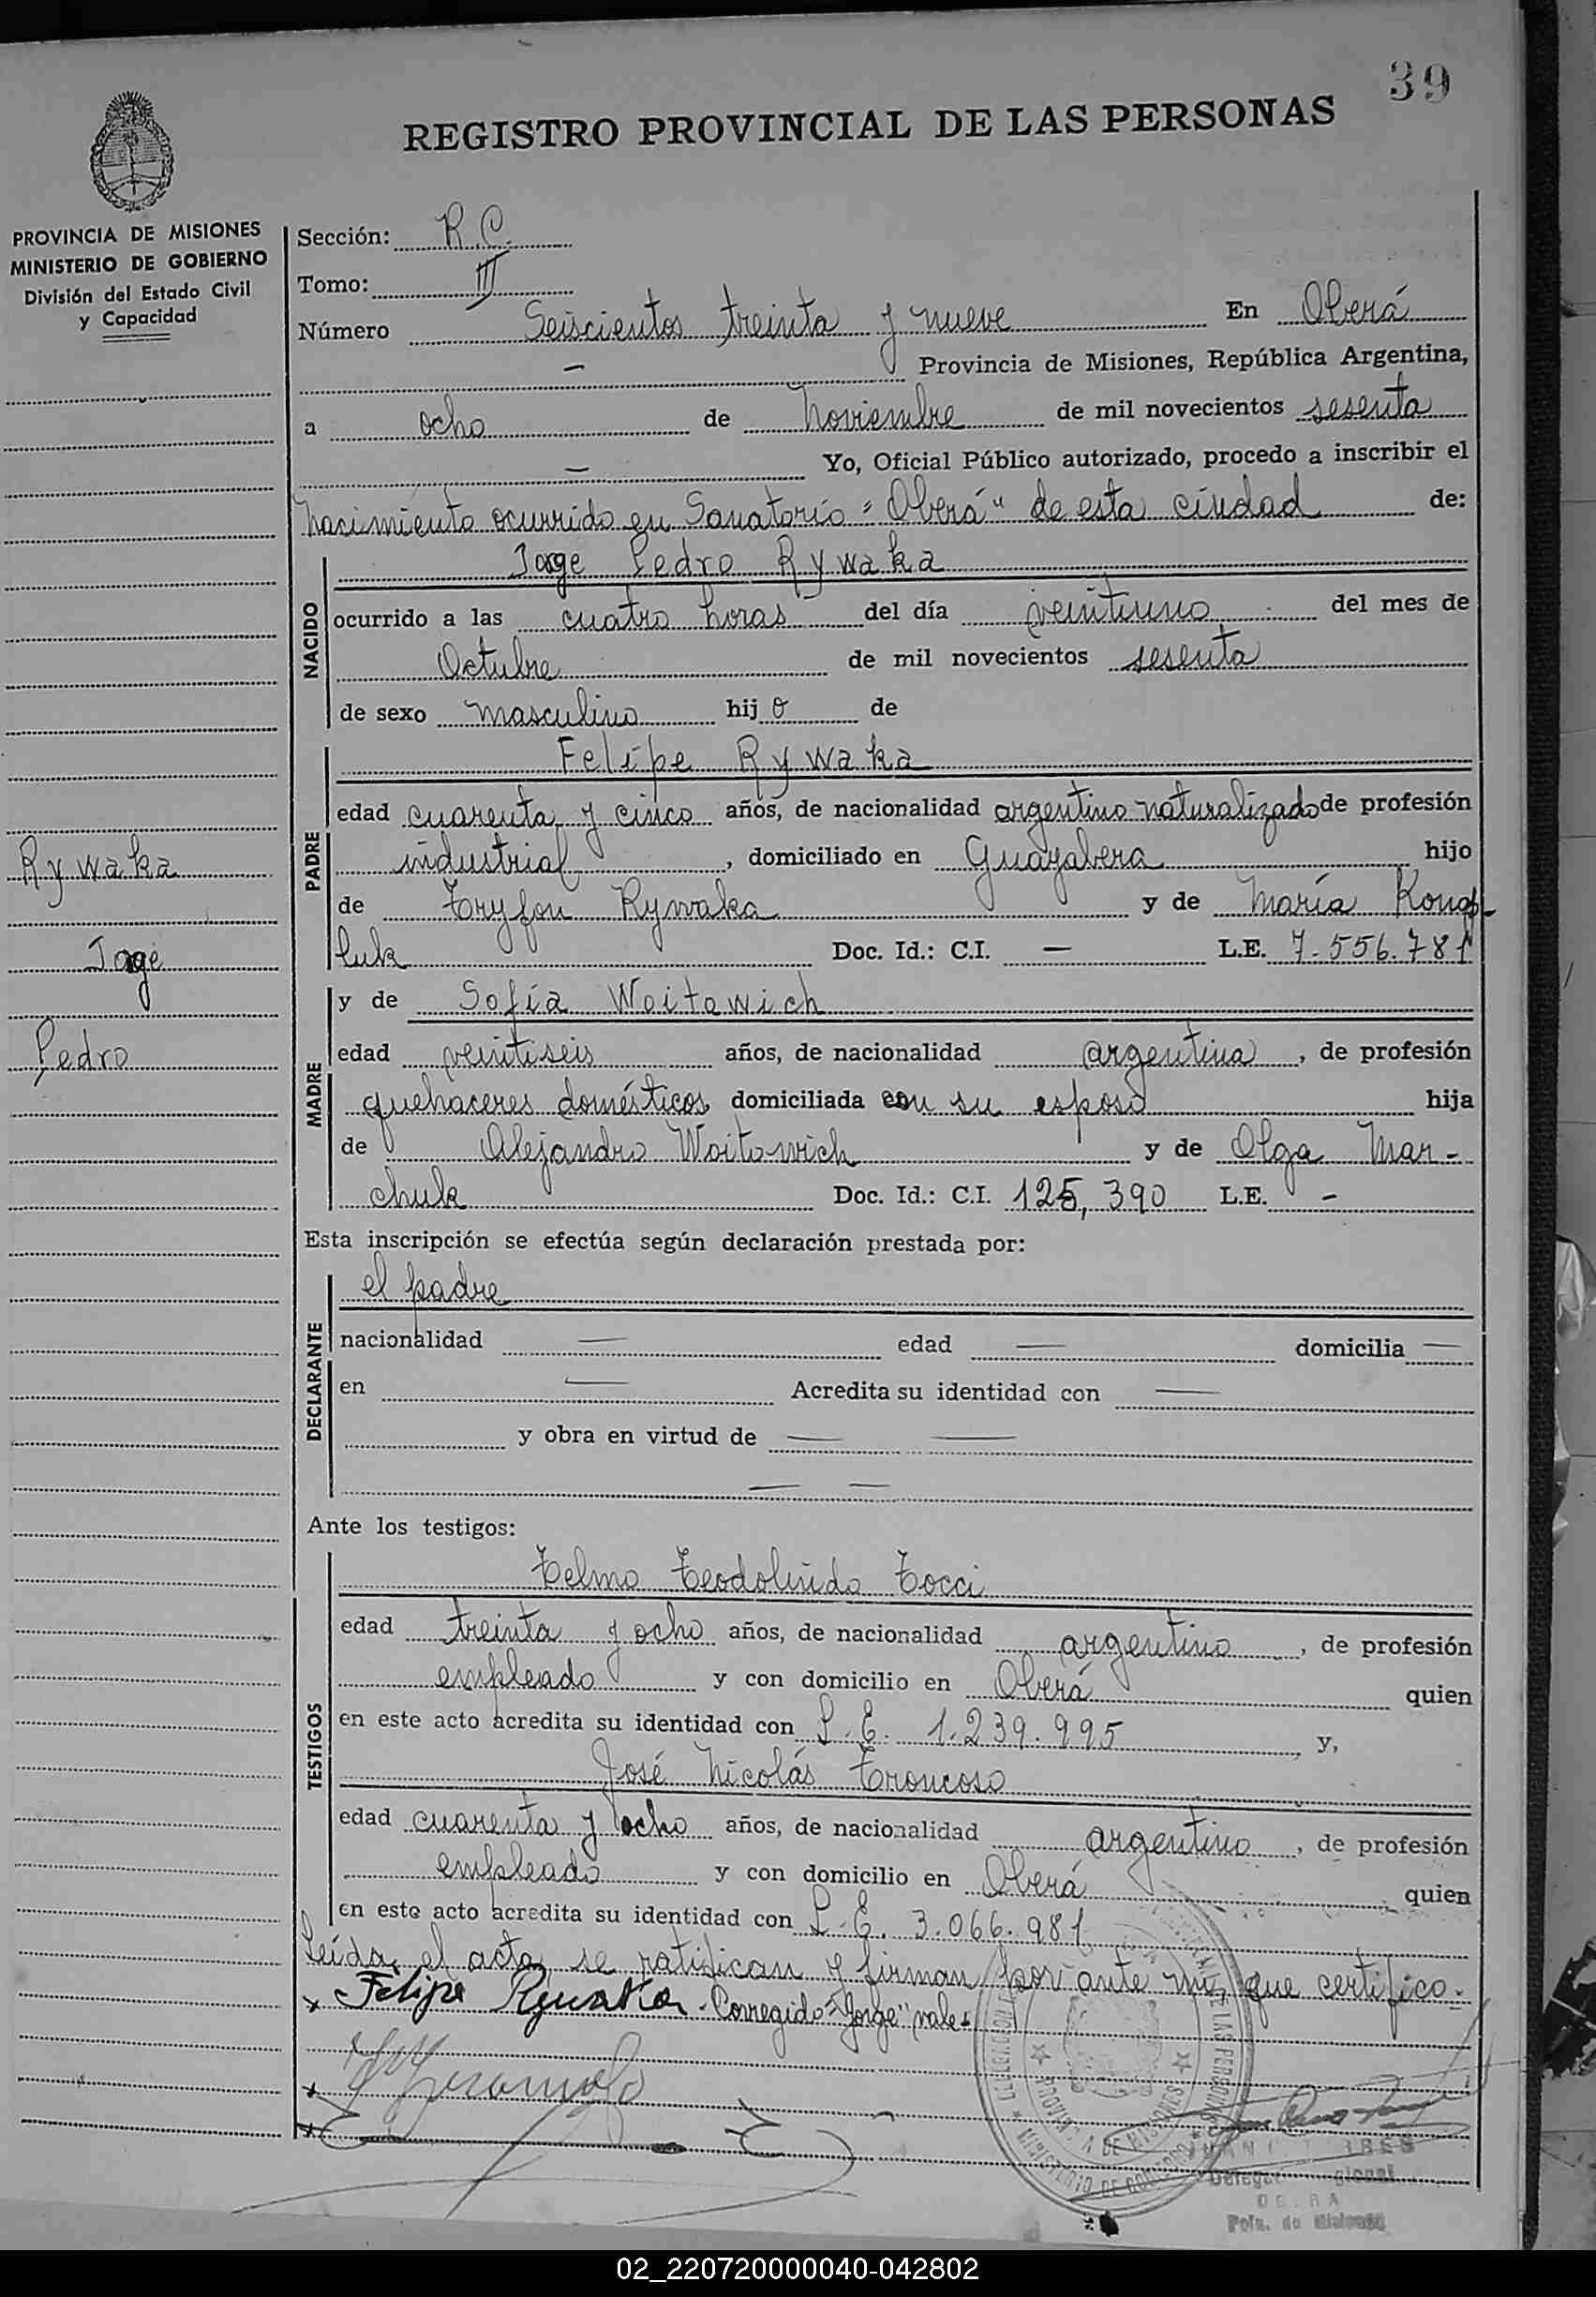 39
REGISTRO PROVINCIAL DE LAS PERSONAS
PROVINCIA DE MISIONES
MINISTERIO DE GOBIERNO
División del Estado Civil
y Capacidad
Sección: R.C.
Tomo: III
Número Seiscientos treinta y nueve En Oberá
— Provincia de Misiones, República Argentina,
a ocho de Noviembre de mil novecientos sesenta
— Yo, Oficial Público autorizado, procedo a inscribir el
nacimiento ocurrido en Sanatorio "Oberá" de esta ciudad de:
NACIDO
Jorge Pedro Rywaka
ocurrido a las cuatro horas del día veintiuno del mes de
Octubre de mil novecientos sesenta
de sexo masculino hijo de
PADRE
Felipe Rywaka
edad cuarenta y cinco años, de nacionalidad argentino naturalizado de profesión
industrial, domiciliado en Guayabera hijo
de Tryfon Rywaka y de María
luk Doc. Id.: C.I. — L.E. 7.556.781
Rywaka
Jorge
Pedro
MADRE
y de Sofía Woitowich
edad veintiseis años, de nacionalidad argentina, de profesión
quehaceres domésticos domiciliada con su esposo hija
de Alejandro Woitowich y de Olga Mar-
chuk Doc. Id.: C.I. 125,390 L.E. -
Esta inscripción se efectúa según declaración prestada por:
DECLARANTE
el padre
nacionalidad — edad — domicilia —
en — Acredita su identidad con —
y obra en virtud de — —
— —
Ante los testigos:
TESTIGOS
Telmo Teodolindo Tocci
edad treinta y ocho años, de nacionalidad argentino, de profesión
empleado y con domicilio en Oberá quien
en este acto acredita su identidad con L.E. 1.239.995 y,
José Nicolás Troncoso
edad cuarenta y ocho años, de nacionalidad argentino, de profesión
empleado y con domicilio en Oberá quien
en este acto acredita su identidad con L.E. 3.066.981
Leída el acta, se ratifican y firman por ante mí, que certifico.-
x Felipe Rywaka - Corregido="Jorge" vale-
MINISTERIO DE GOBIERNO
Pcia. de Misiones
02_220720000040-042802